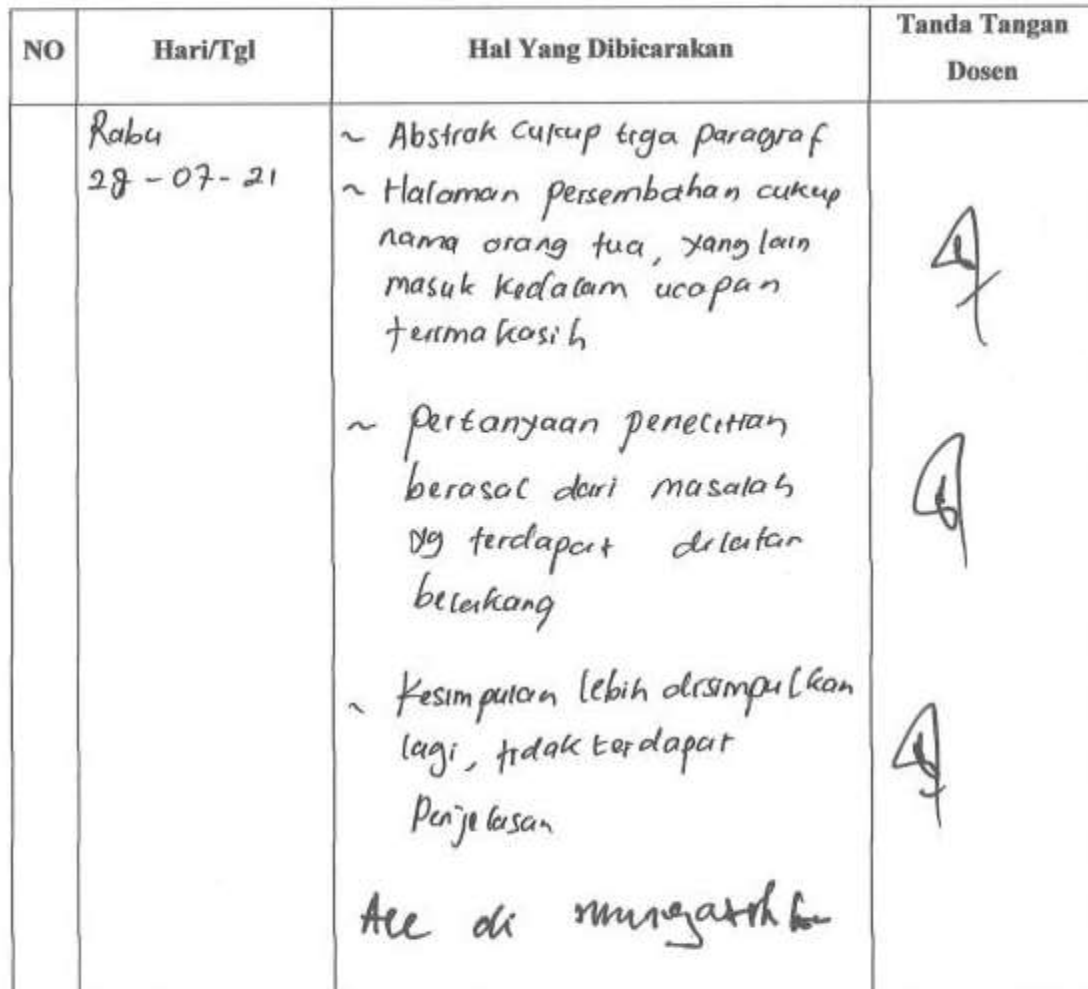 NO Hari/Tgl Hal Yang Dibicarakan Tanda Tangan Dosen
Rabu
28-07-21
~ Abstrak cukup tiga paragraf
~ Halaman persembahan cukup
nama orang tua, yang lain
masuk kedalam ucapan
terimakasih
~ Pertanyaan penelitian
berasal dari masalah
yg terdapat dilatar
belakang
~ Kesimpulan lebih disimpulkan
lagi, tidak terdapat
Penjelasan
Acc di